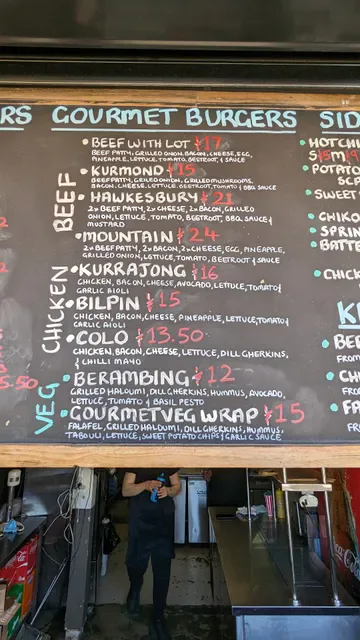 RS GOURMET BURGERS SID
BEEF
• BEEF WITH LOT $17
BEEF PATTY, GRILLED ONION, BACON, CHEESE, EGG,
PINEAPPLE, LETTUCE, TOMATO, BEETROOT, & SAUCE
• KURMOND $15
BEEF PATTY, GRILLED ONION, GRILLED MUSHROOMS,
BACON, CHEESE, LETTUCE, BEETROOT, TOMATO & BBQ SAUCE
• HAWKESBURY $21
2x BEEF PATTY, 2x CHEESE, 2x BACON, GRILLED
ONION, LETTUCE, TOMATO, BEETROOT, BBQ SAUCE &
MUSTARD
• MOUNTAIN $24
2x BEEF PATTY, 2x BACON, 2x CHEESE, EGG, PINEAPPLE,
GRILLED ONION, LETTUCE, TOMATO, BEETROOT & SAUCE
CHICKEN
• KURRAJONG $16
CHICKEN, BACON, CHEESE, AVOCADO, LETTUCE, TOMATO &
GARLIC AIOLI
• BILPIN $15
CHICKEN, BACON, CHEESE, PINEAPPLE, LETTUCE, TOMATO &
GARLIC AIOLI
• COLO $13.50
CHICKEN, BACON, CHEESE, LETTUCE, DILL GHERKINS,
& CHILLI MAYO
VEG
• BERAMBING $12
GRILLED HALOUMI, DILL GHERKINS, HUMMUS, AVOCADO,
LETTUCE, TOMATO & BASIL PESTO
• GOURMET VEG WRAP $15
FALAFEL, GRILLED HALOUMI, DILL GHERKINS, HUMMUS,
TABOULI, LETTUCE, SWEET POTATO CHIPS & GARLIC SAUCE
5.50
• HOTCHI
• POTATO
SC
• SWEET
• CHIKO
• SPRIN
• BATT
• CHICK
K
• BEE
FROM
• CHI
FROM
• FA
FRO
Coca